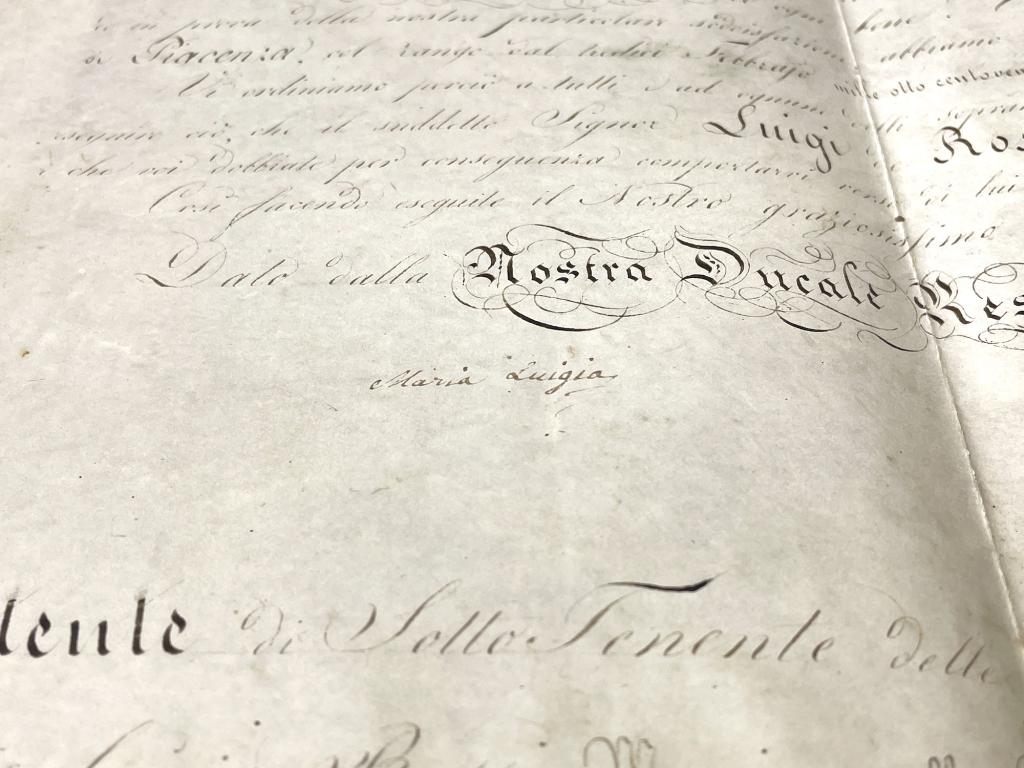 in prova della nostra particolare soddisfazione abbiamo
di Piacenza, col rango dal Febbrajo mille otto cento
Vi ordiniamo perciò a tutti e ad ognuno
eseguire ciò, che il suddetto Signor Luigi Ros
e che voi dobbiate per conseguenza comportarvi verso di lui
Così facendo eseguite il Nostro graziosissimo
Dato dalla Nostra Ducale Res
Maria Luigia
tente di Sotto Tenente delle